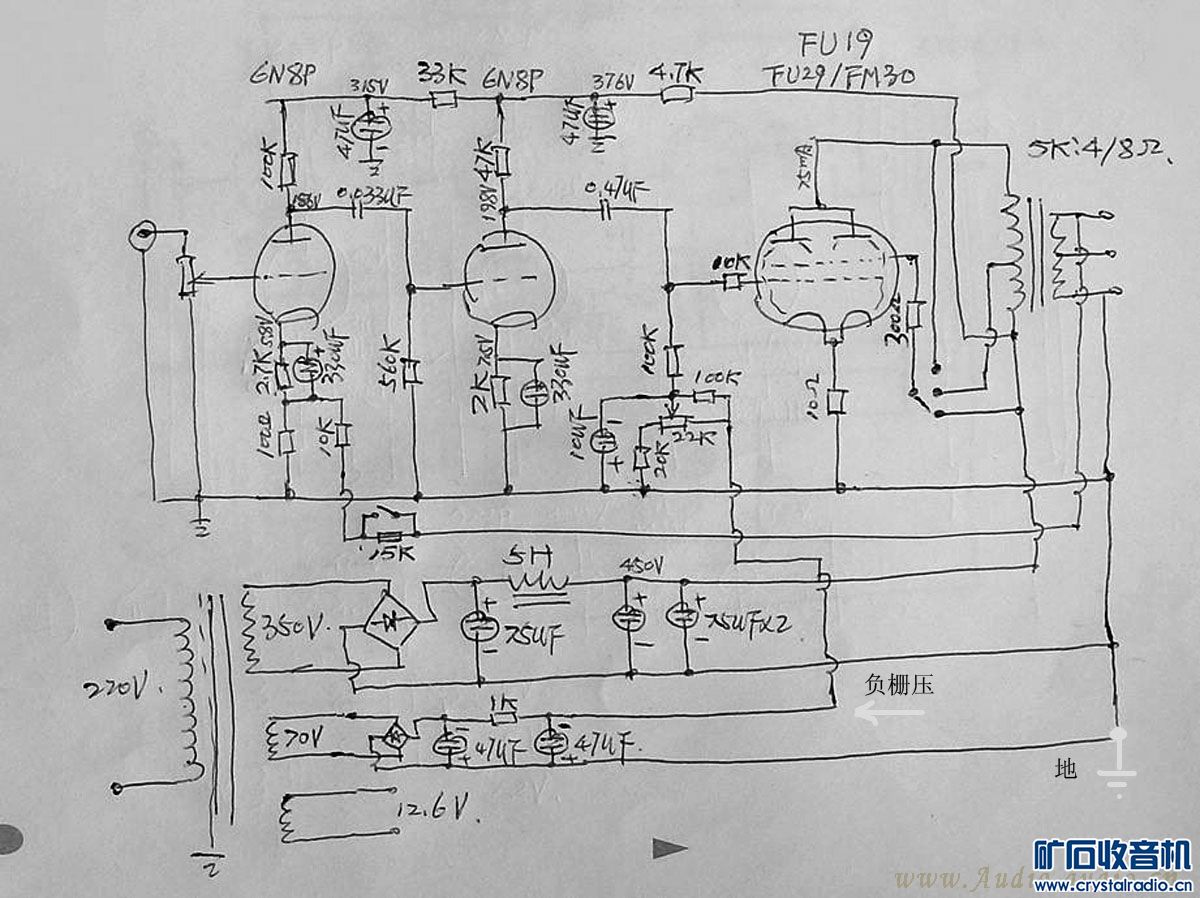 FU19
FU29/FM30
6N8P
315V
33K
6N8P
376V
4.7K
47UF
47UF
5K:4/8Ω.
100K
47K
75mA
186V
0.033UF
198V
0.47UF
10K
300Ω
2.7K
330UF
560K
2K
7.5V
330UF
100K
100K
10UF
22K
20K
10Ω
100Ω
10K
15K
5H
450V
350V.
75UF
75UFX2
220V.
负栅压
1K
70V
47UF
47UF.
地
12.6V.
矿石收音机
www.crystalradio.cn